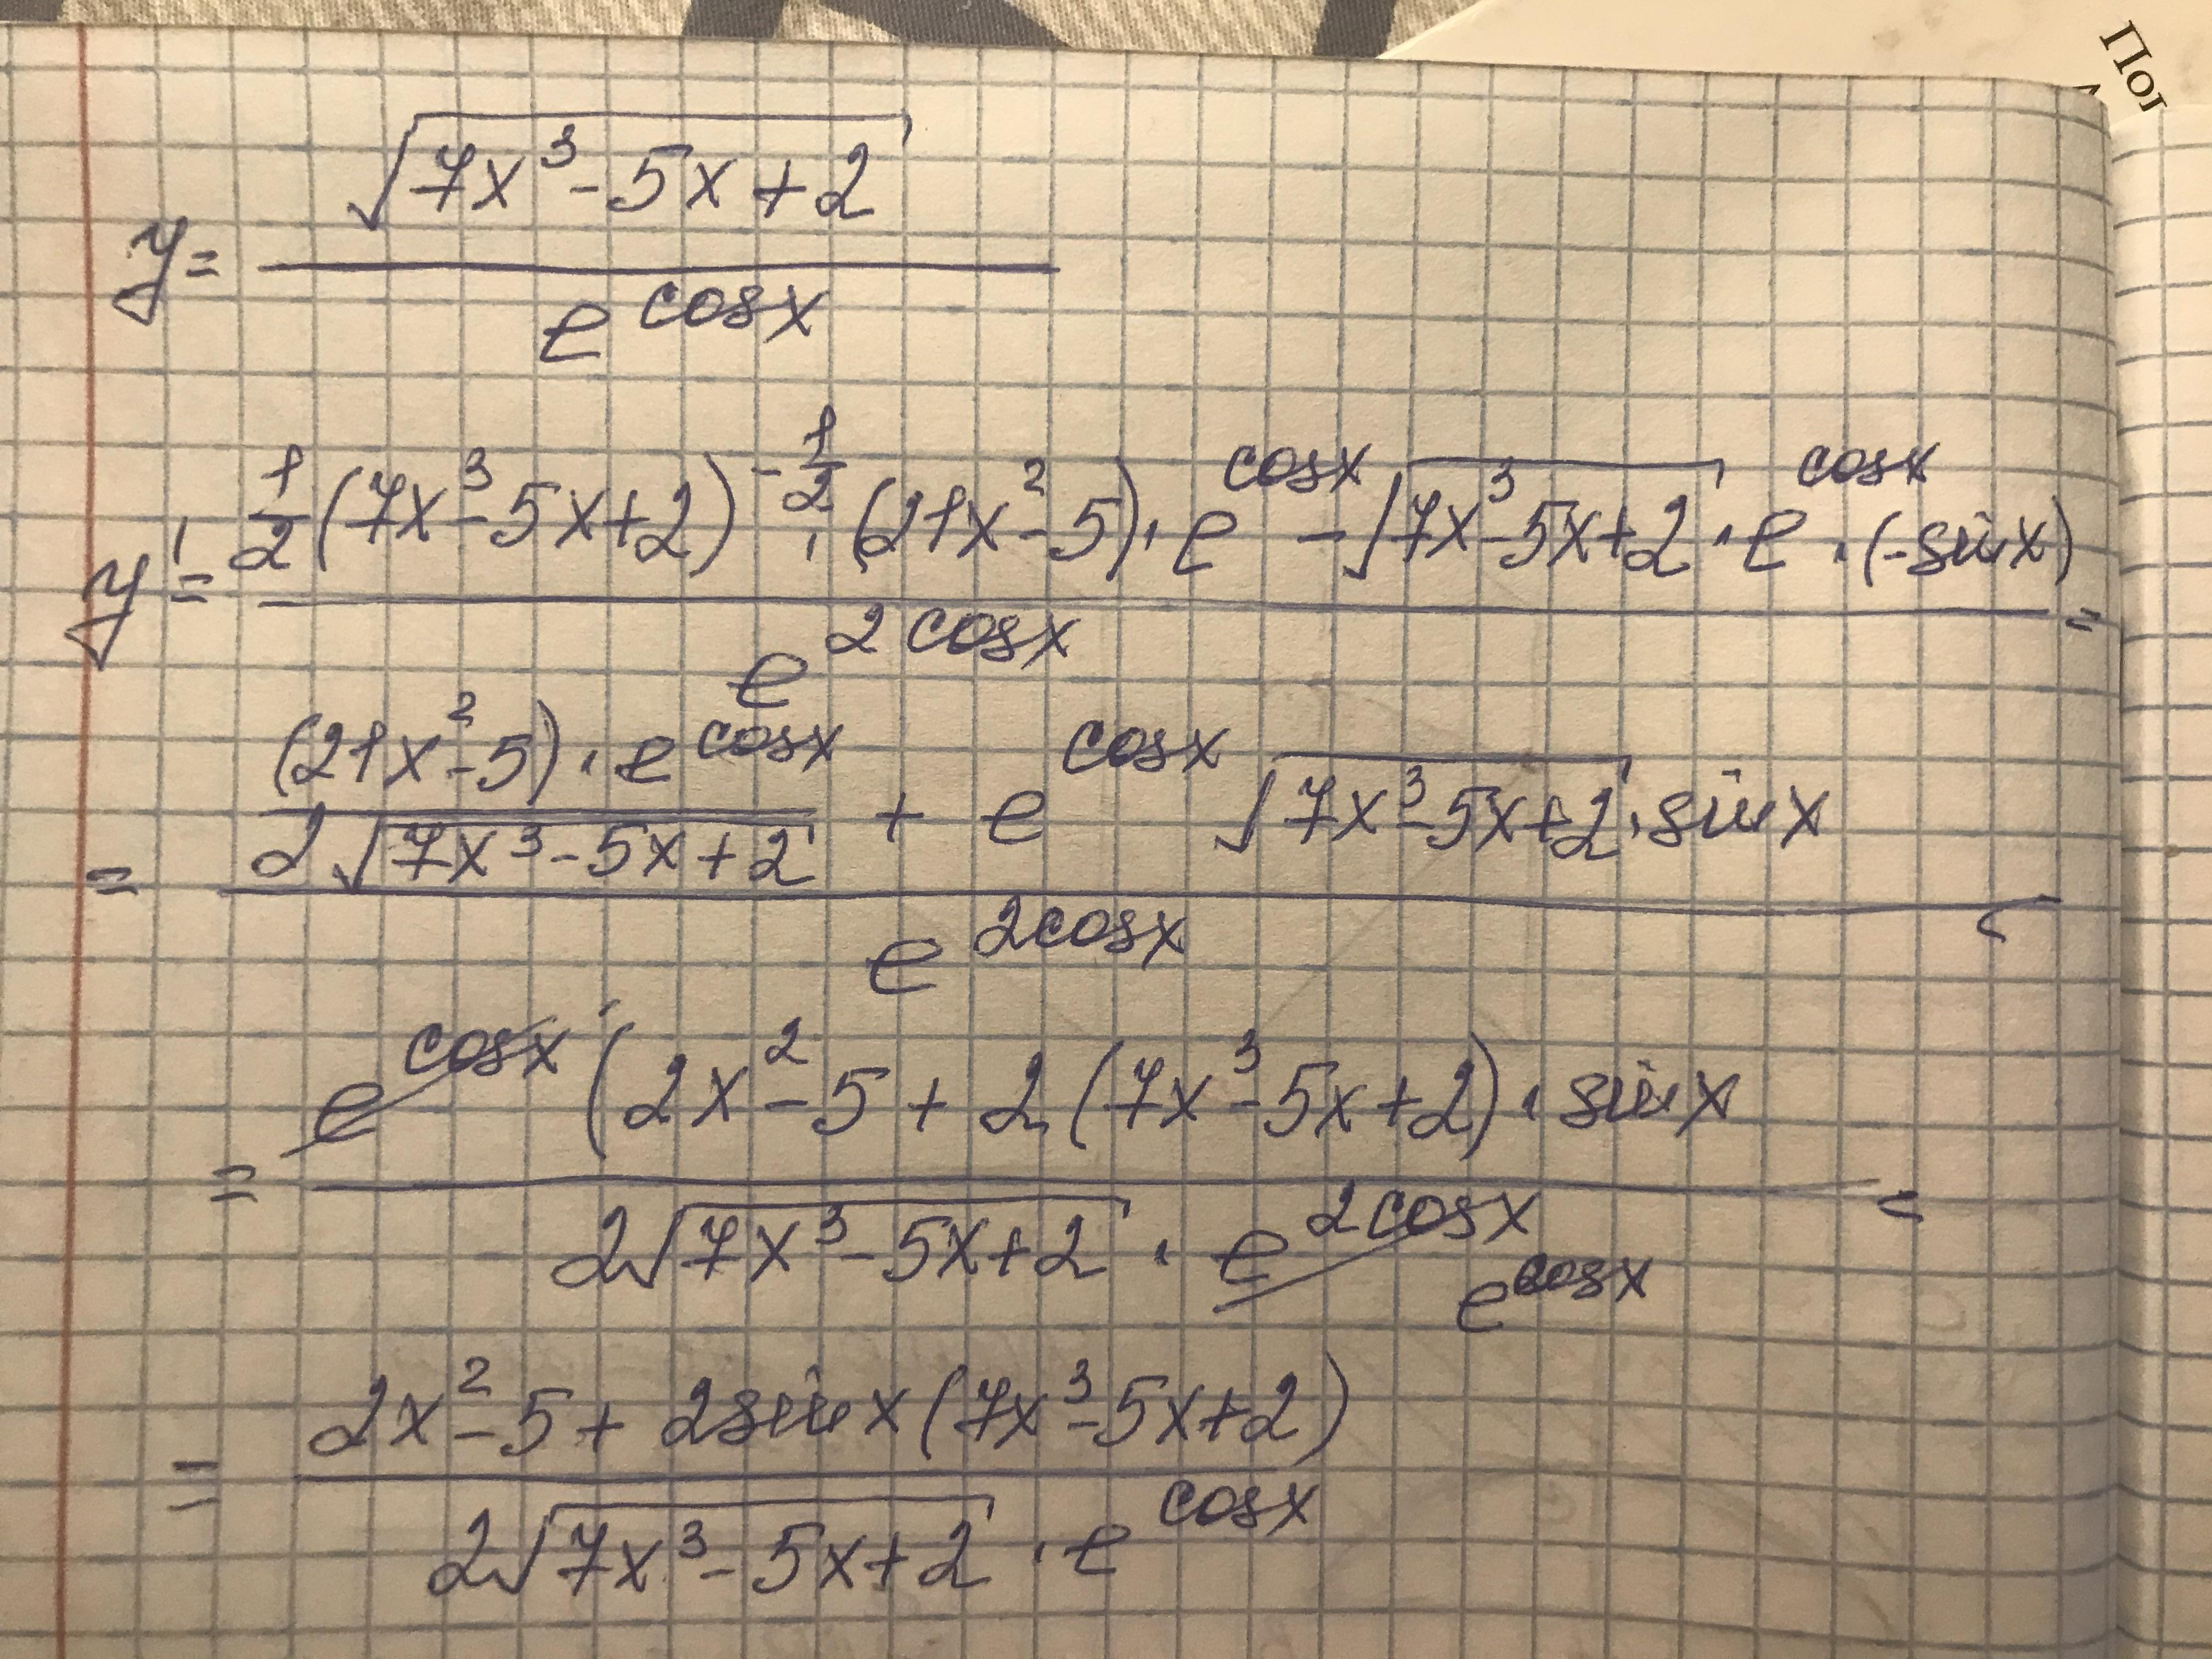 Пог
y = √(7x³ - 5x + 2) / e^(cosx)
y' = (1/2 (7x³ - 5x + 2)^(-1/2) · (21x² - 5) · e^(cosx) - √(7x³ - 5x + 2) · e^(cosx) · (-sinx)) / e^(2cosx) =
= ((21x² - 5) · e^(cosx) / (2√(7x³ - 5x + 2)) + e^(cosx) √(7x³ - 5x + 2) · sinx) / e^(2cosx) =
= e^(cosx) (2x² - 5 + 2(7x³ - 5x + 2) · sinx / (2√(7x³ - 5x + 2) · e^(2cosx) e^(cosx)) =
= (2x² - 5 + 2sinx(7x³ - 5x + 2)) / (2√(7x³ - 5x + 2) · e^(cosx))